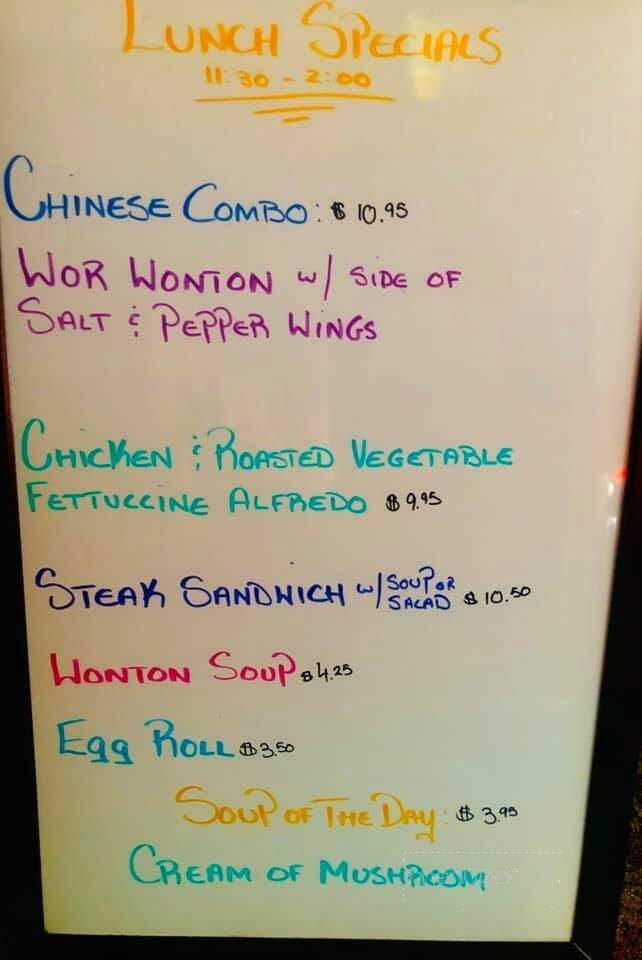 LUNCH SPECIALS
11:30 - 2:00
CHINESE COMBO: $ 10.95
WOR WONTON w/ SIDE OF
SALT & PEPPER WINGS
CHICKEN & ROASTED VEGETABLE
FETTUCCINE ALFREDO $ 9.95
STEAK SANDWICH w/ SOUP OR
SALAD $ 10.50
WONTON SOUP $ 4.25
Egg ROLL $ 3.50
SOUP OF THE DAY: $ 3.95
CREAM OF MUSHROOM